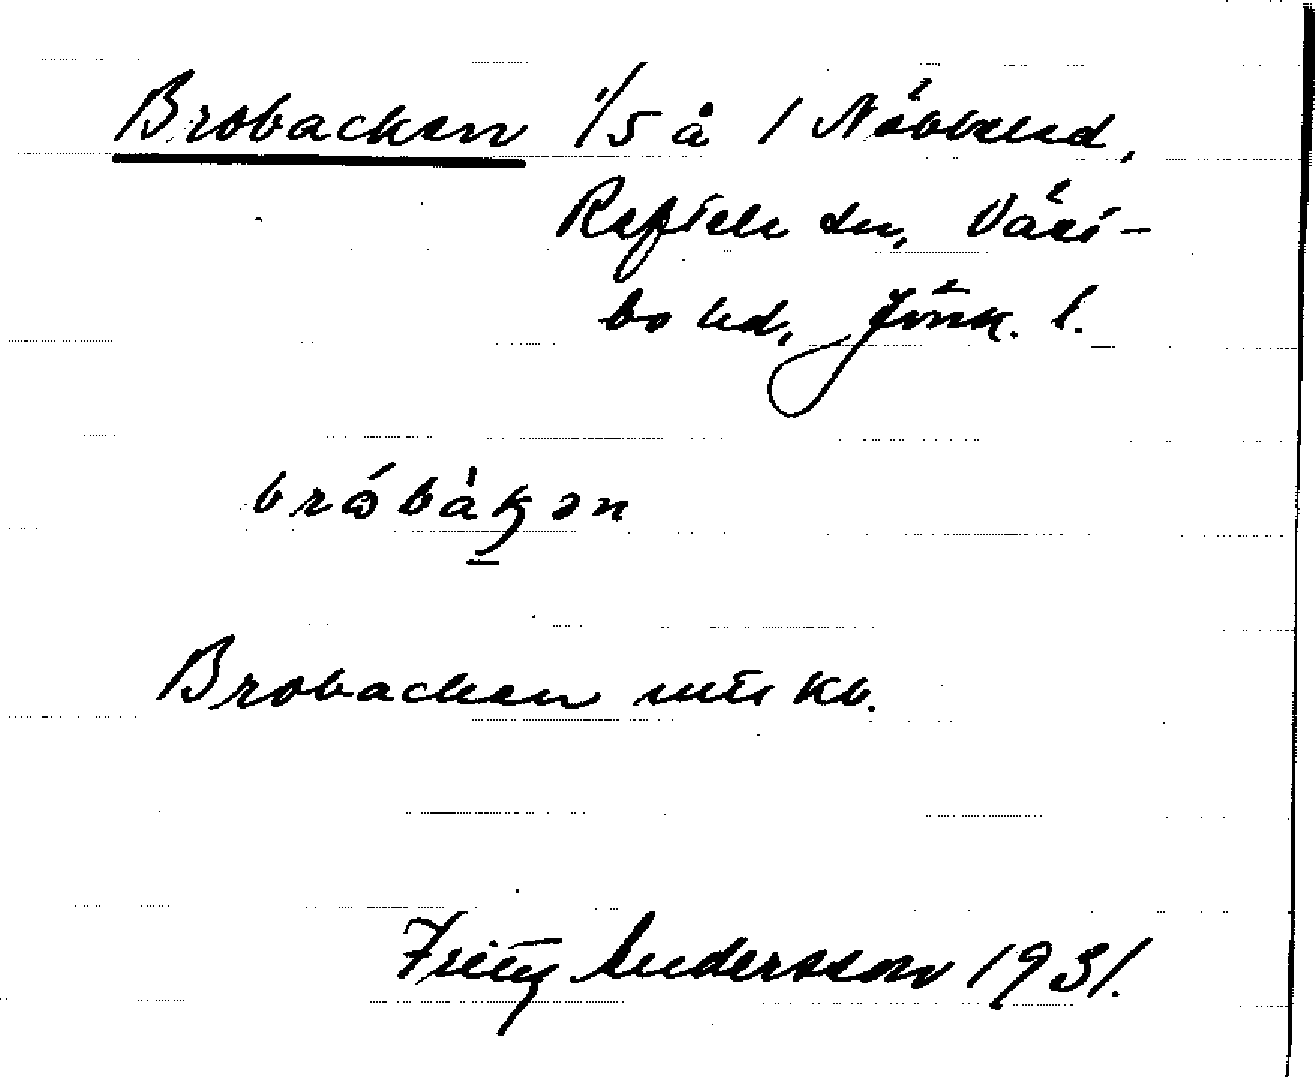 Brobacken 1/5 å 1 Nöbbeled,
Reftele sn, Väst-
bo hd, Jönk. l.
bróbàkən
Brobacken mts kb.
Fritz Andersson 1931.